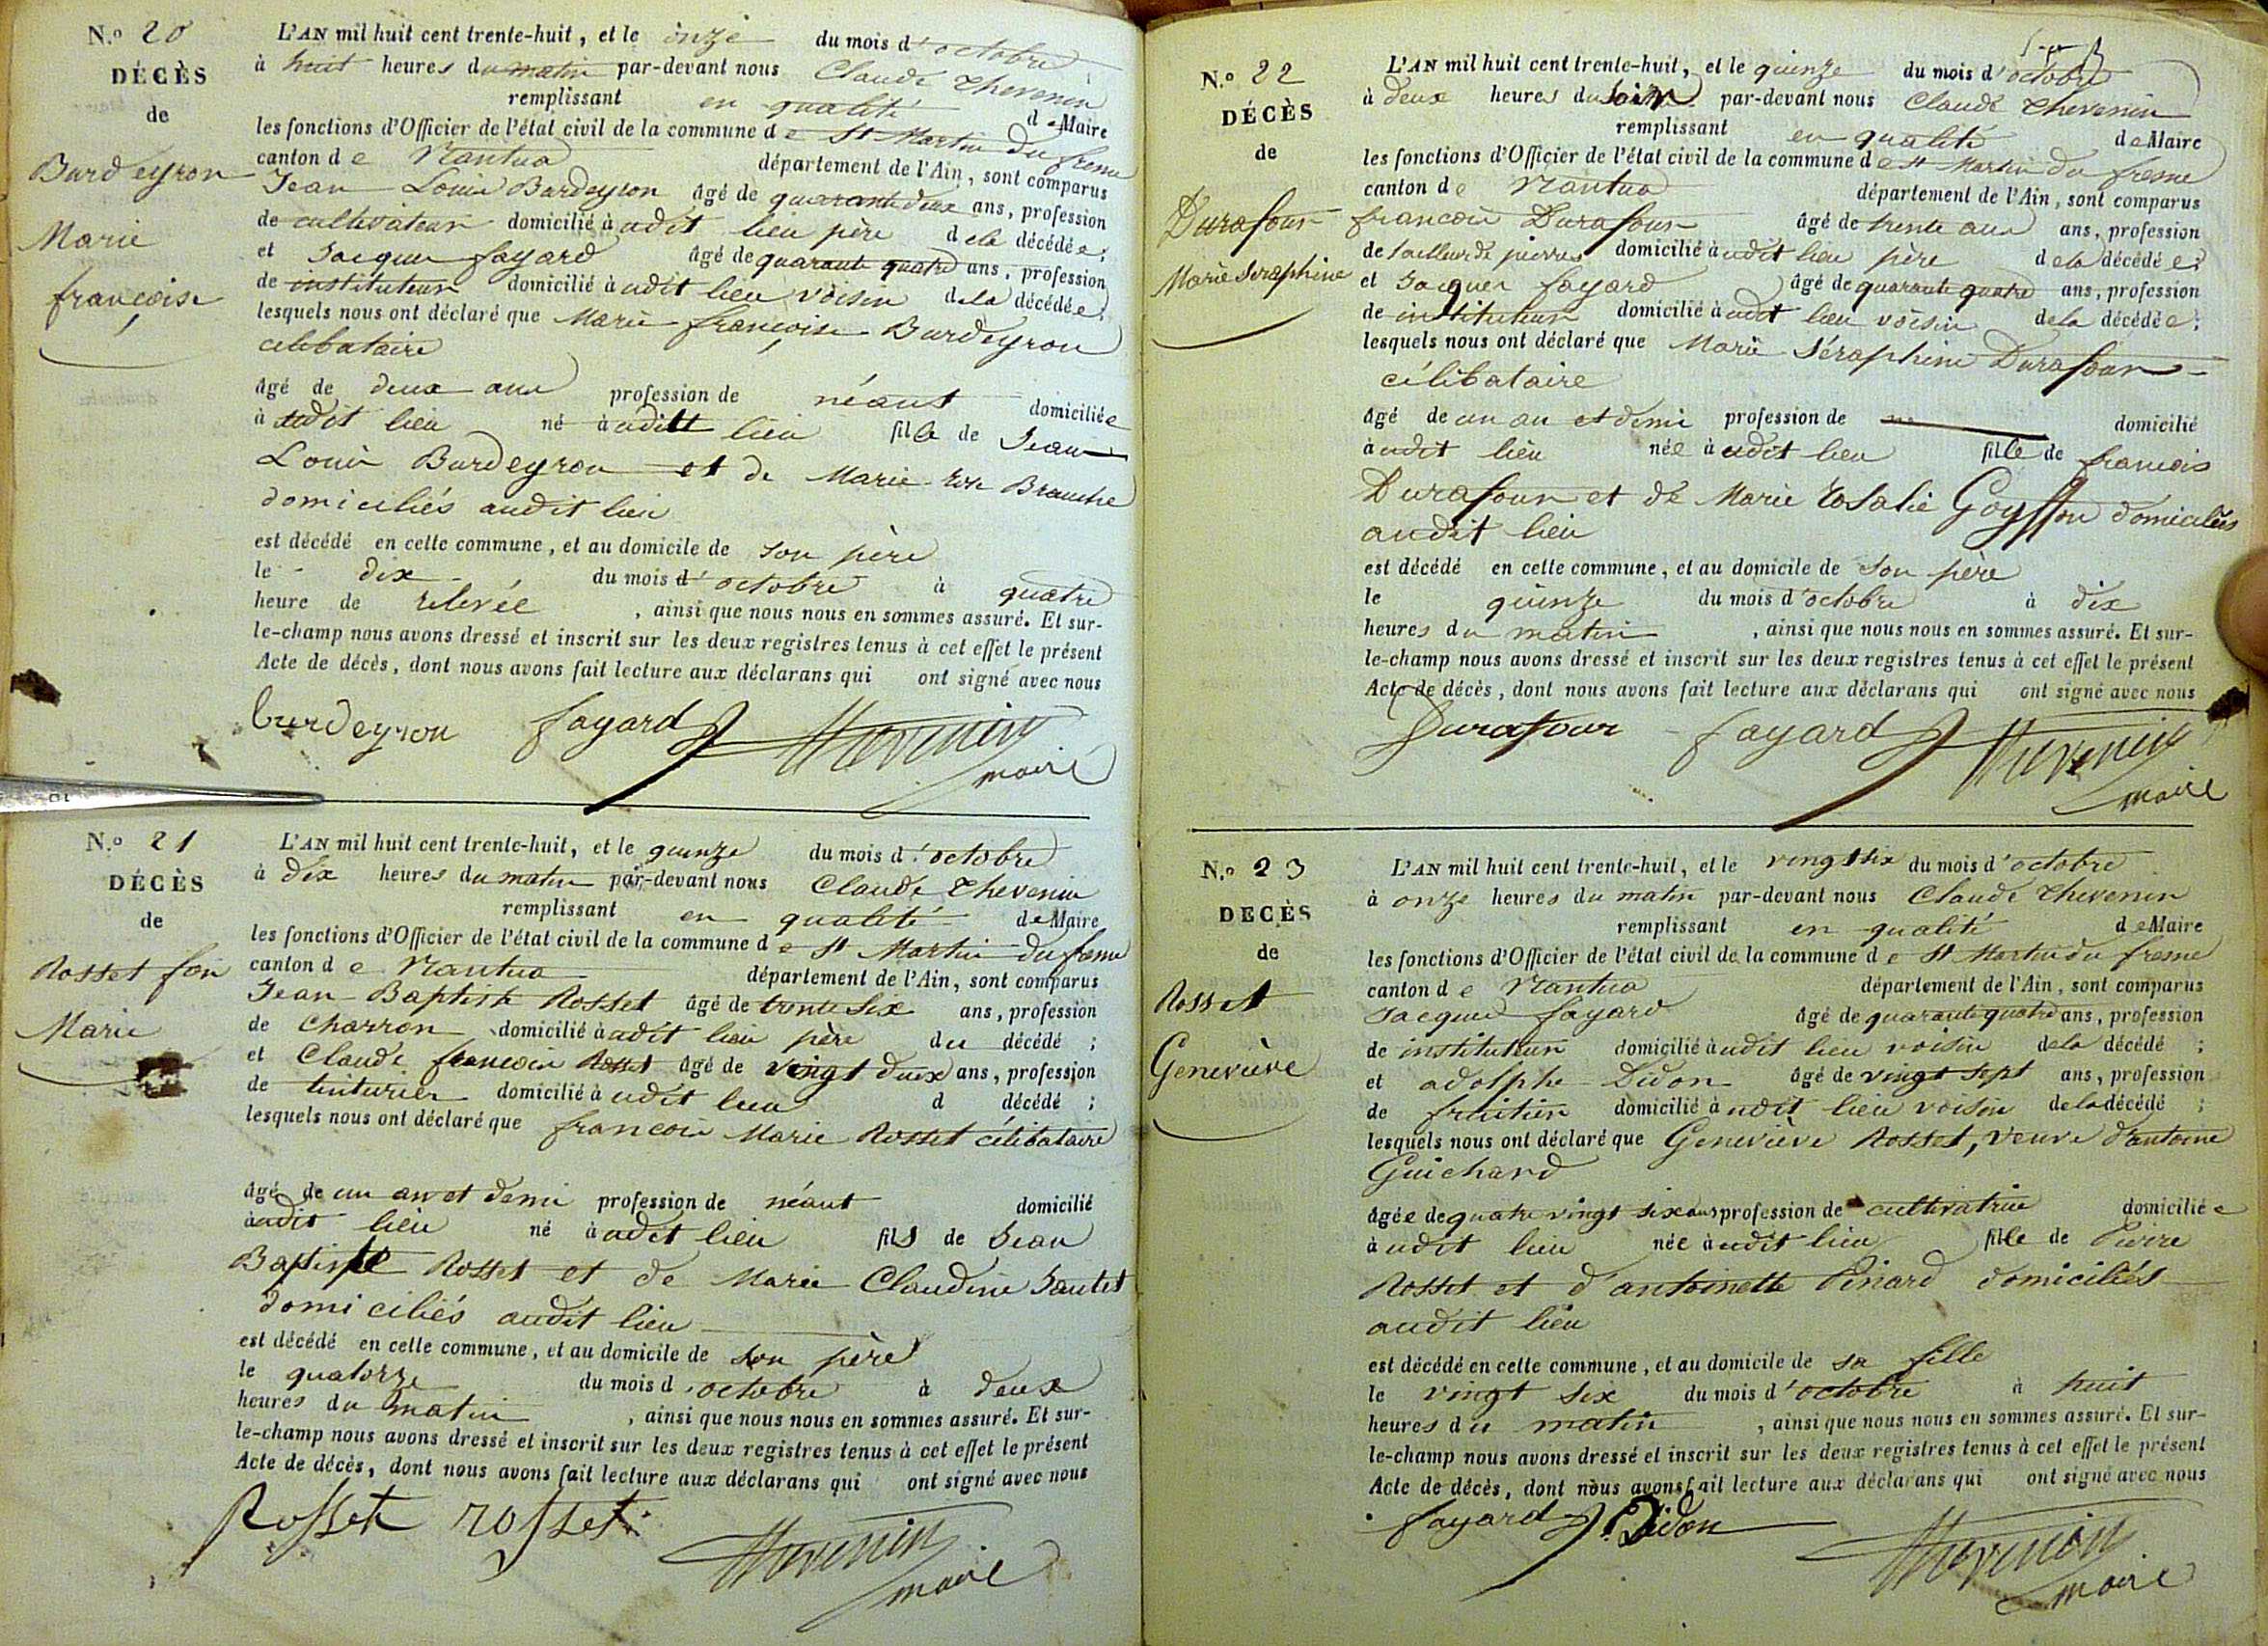 N.o 20
DÉCÈS
de
Burdeyron
Marie
françoise
L'AN mil huit cent trente-huit, et le onze du mois d'octobre
à huit heures du matin par-devant nous Claude Thevenin
remplissant en qualité de Maire
les fonctions d'Officier de l'état civil de la commune de St Martin du fresne
canton de Nantua département de l'Ain, sont comparus
Jean Louis Burdeyron âgé de quarante deux ans, profession
de cultivateur domicilié à udit lieu père de la décédée;
et Jacques fayard âgé de quarante quatre ans, profession
de instituteur domicilié à udit lieu voisin de la décédée;
lesquels nous ont déclaré que Marie françoise Burdeyron
célibataire
âgé de deux ans profession de néant domiciliée
à udit lieu né à udit lieu fille de Jean
Louis Burdeyron et de Marie rose Branche
domiciliés audit lieu
est décédé en cette commune, et au domicile de son père
le dix du mois d'octobre à quatre
heure de relevée, ainsi que nous nous en sommes assuré. Et sur-
le-champ nous avons dressé et inscrit sur les deux registres tenus à cet effet le présent
Acte de décès, dont nous avons fait lecture aux déclarans qui ont signé avec nous
burdeyron fayard Thevenin
maire
N.o 21
DÉCÈS
de
Rosset fois
Marie
L'AN mil huit cent trente-huit, et le quinze du mois d'octobre
à dix heures du matin par-devant nous Claude Thevenin
remplissant en qualité de Maire
les fonctions d'Officier de l'état civil de la commune de St Martin du fresne
canton de Nantua département de l'Ain, sont comparus
Jean-Baptiste Rosset âgé de trente six ans, profession
de charron domicilié à udit lieu père du décédé;
et Claude françois Rosset âgé de vingt deux ans, profession
de teinturier domicilié à udit lieu d décédé;
lesquels nous ont déclaré que françois Marie Rosset célibataire
âgé de un an et demi profession de néant domicilié
à udit lieu né à udit lieu fils de Jean
Baptiste Rosset et de Marie Claudine Sautet
domiciliés audit lieu
est décédé en cette commune, et au domicile de son père
le quatorze du mois d'octobre à deux
heures du matin, ainsi que nous nous en sommes assuré. Et sur-
le-champ nous avons dressé et inscrit sur les deux registres tenus à cet effet le présent
Acte de décès, dont nous avons fait lecture aux déclarans qui ont signé avec nous
Rosset rosset Thevenin
maire
N.o 22
DÉCÈS
de
Durafour
Marie Seraphine
L'AN mil huit cent trente-huit, et le quinze du mois d'octobre
à deux heures du soir par-devant nous Claude Thevenin
remplissant en qualité de Maire
les fonctions d'Officier de l'état civil de la commune de St Martin du fresne
canton de Nantua département de l'Ain, sont comparus
françois Durafour âgé de trente ans ans, profession
de tailleur de pierres domicilié à udit lieu père de la décédée;
et Jacques fayard âgé de quarante quatre ans, profession
de instituteur domicilié à udit lieu voisin de la décédée;
lesquels nous ont déclaré que Marie Séraphine Durafour
célibataire
âgé de un an et demi profession de domicilié
à udit lieu née à udit lieu fille de françois
Durafour et de Marie rosalie Goyffon domiciliés
audit lieu
est décédé en cette commune, et au domicile de son père
le quinze du mois d'octobre à dix
heures du matin, ainsi que nous nous en sommes assuré. Et sur-
le-champ nous avons dressé et inscrit sur les deux registres tenus à cet effet le présent
Acte de décès, dont nous avons fait lecture aux déclarans qui ont signé avec nous
Durafour fayard Thevenin
maire
N.o 23
DÉCÈS
de
Rosset
Geneviève
L'AN mil huit cent trente-huit, et le vingt six du mois d'octobre
à onze heures du matin par-devant nous Claude Thevenin
remplissant en qualité de Maire
les fonctions d'Officier de l'état civil de la commune de St Martin du fresne
canton de Nantua département de l'Ain, sont comparus
Jacques fayard âgé de quarante quatre ans, profession
de instituteur domicilié à udit lieu voisin de la décédé;
et adolphe Didon âgé de vingt sept ans, profession
de fruitier domicilié à udit lieu voisin de la décédé;
lesquels nous ont déclaré que Geneviève Rosset, veuve d'antoine
Guichard
âgée de quatre vingt six ans profession de cultivatrice domiciliée
à udit lieu née à udit lieu fille de Pierre
Rosset et d'antoinette Pinard domiciliés
audit lieu
est décédé en cette commune, et au domicile de sa fille
le vingt six du mois d'octobre à huit
heures du matin, ainsi que nous nous en sommes assuré. Et sur-
le-champ nous avons dressé et inscrit sur les deux registres tenus à cet effet le présent
Acte de décès, dont nous avons fait lecture aux déclarans qui ont signé avec nous
fayard Didon Thevenin
maire